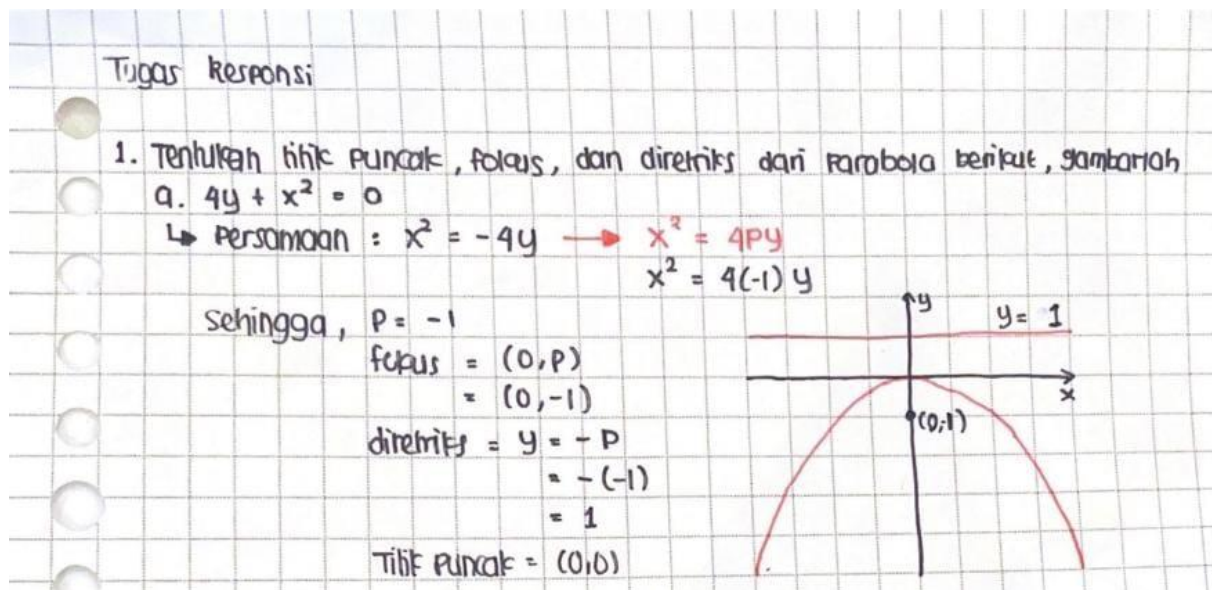 Tugas Responsi
1. Tentukan titik puncak, fokus, dan direktriks dari parabola berikut, gambarlah
a. 4y + x² = 0
↳ Persamaan : x² = -4y → x² = 4py
x² = 4(-1) y
y
y = 1
sehingga, P = -1
fokus = (0,P)
= (0,-1)
x
(0,-1)
direktriks = y = -P
= -(-1)
= 1
Titik puncak = (0,0)